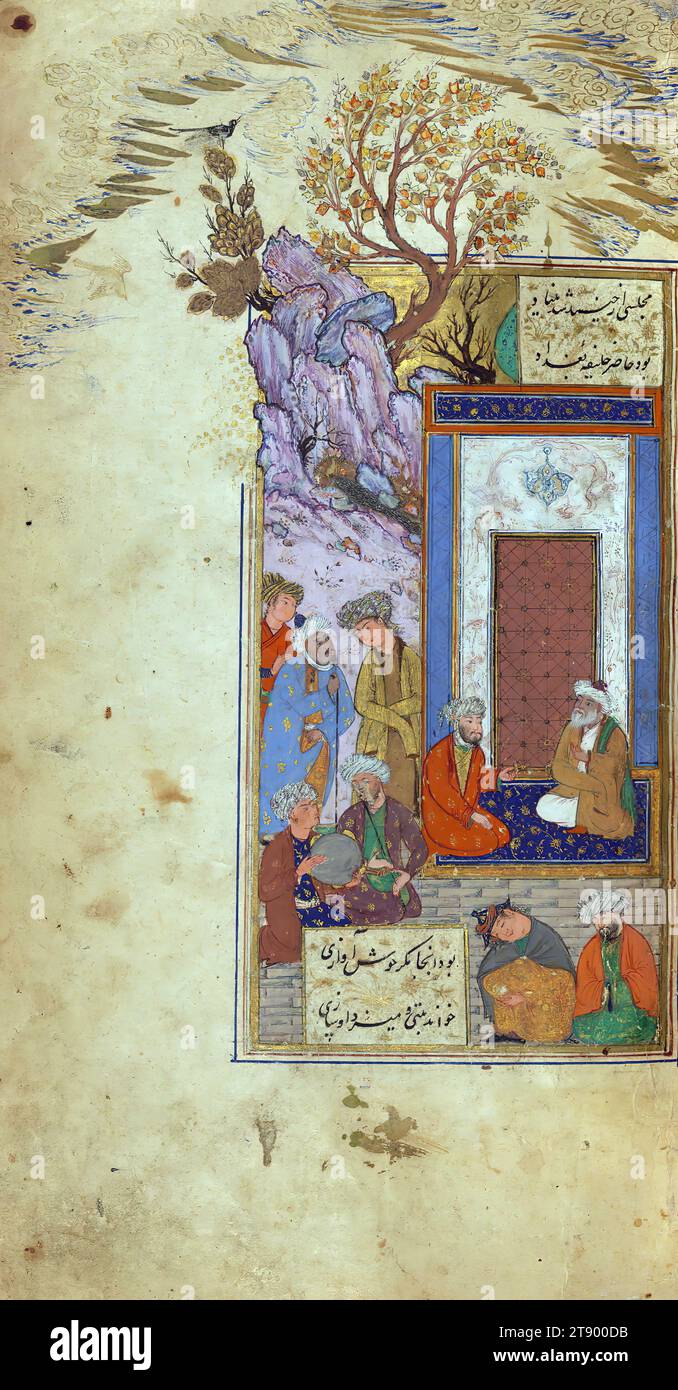 مجلسی از جنید شد بنیاد
بود حاضر خلیفه بغداد
بود انجا مگر خوش آوازی
خواند بیتی و میزد او سازی
alamy
Image ID: 2T900DB
www.alamy.com